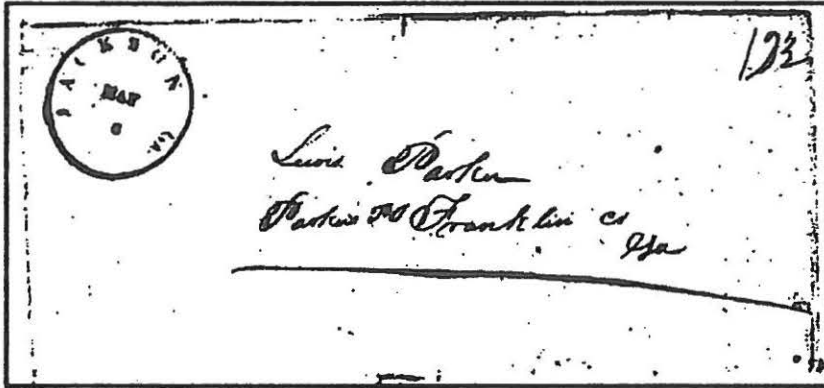 JACKSON GA.
MAY
6
12½
Lewis Parker
Parkers PO Franklin co
Ga